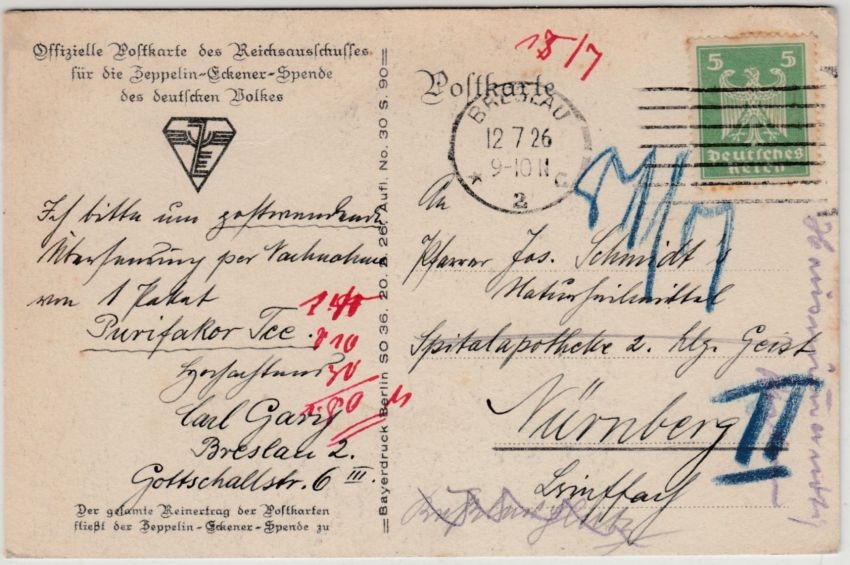 Offizielle Postkarte des Reichsausschusses
für die Zeppelin-Eckener-Spende
des deutschen Volkes
Ich bitte um postwendende
Übersendung per Nachnahme
von 1 Paket
Purifakor Tee.
Hochachtend
Carl
Breslau 2.
Gottschallstr. 6 III.
Der gesamte Reinertrag der Postkarten
fließt der Zeppelin-Eckener-Spende zu
Bayerdruck Berlin SO 36. 20. 2. 26. Aufl. No. 30 S. 90
18/7
30
Postkarte
BRESLAU
12 7 26
9-10 N
* 2 c
5 5
Deutsches
Reich
An
Pfarrer Jos. Schmidt's
Naturheilmittel
Spitalapotheke z. hlg. Geist
Nürnberg
II